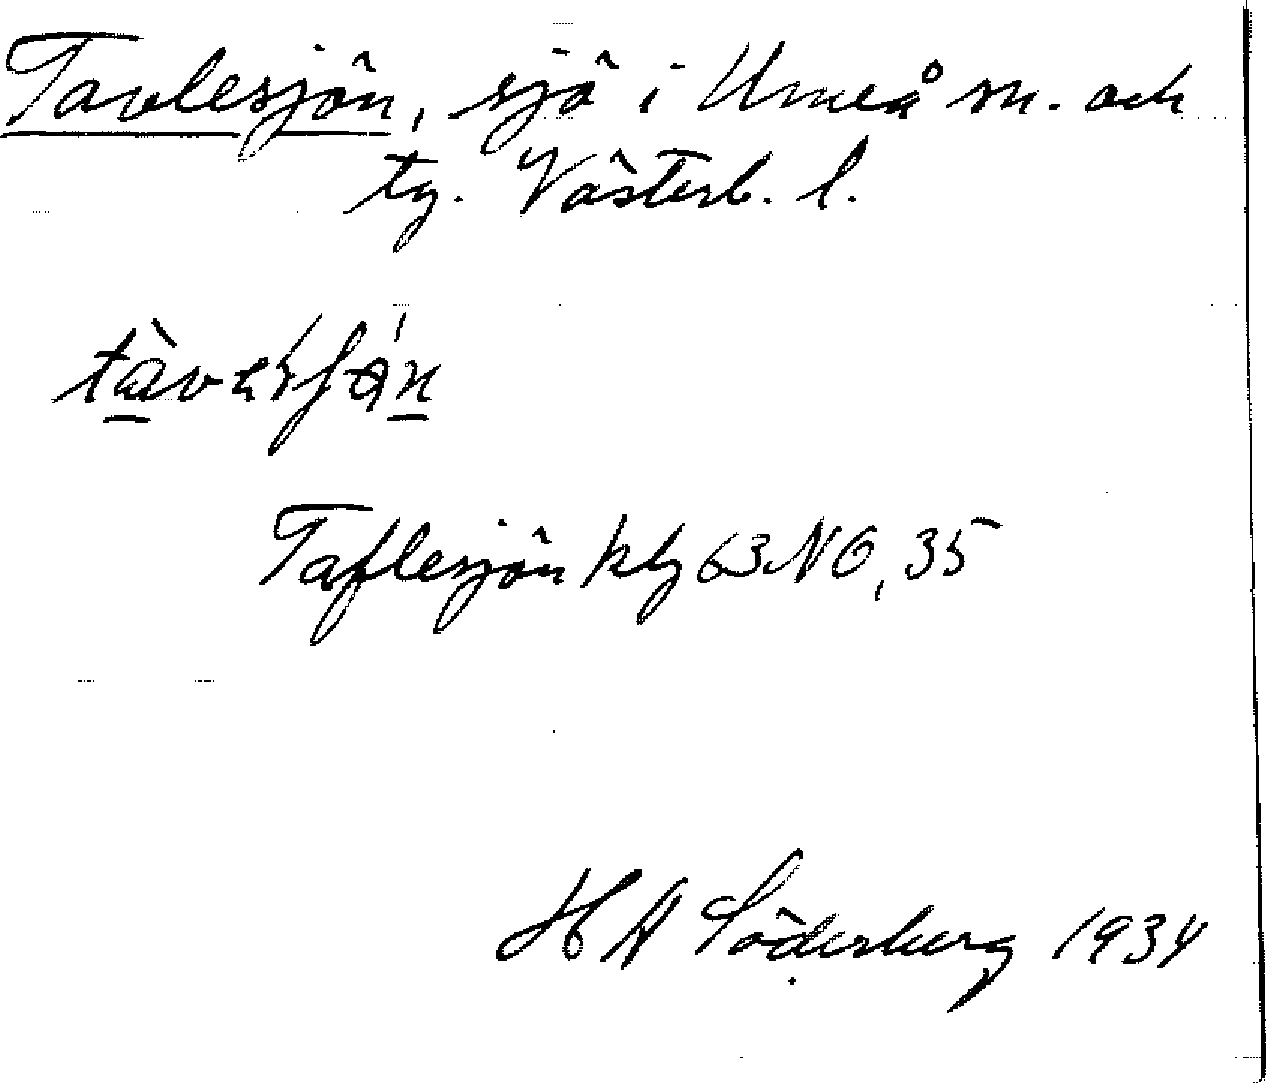 Tavlesjön, sjö i Umeå sn. och
tg. Västerb. l.
Taflesjön ktg 63 NO, 35
H A Söderberg 1934